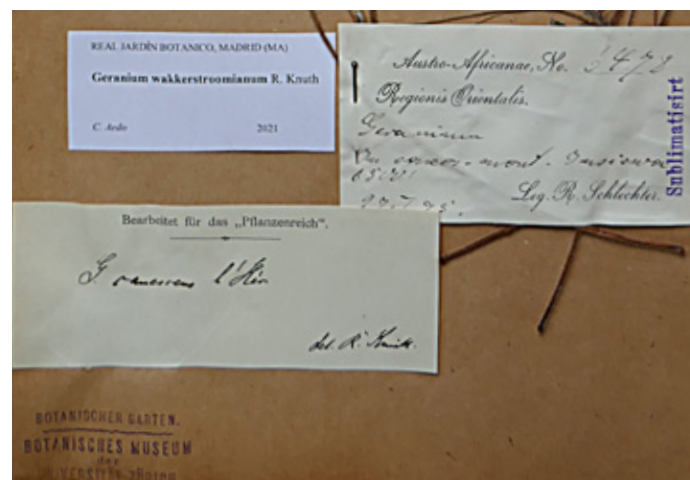 REAL JARDÍN BOTANICO, MADRID (MA)
Geranium wakkerstroomianum R. Knuth
C. Aedo 2021
Austro-Africanae, No. 3472
Regionis Orientalis.
Geranium
mont.
6500'
Leg. R. Schlechter.
Sublimatisirt
Bearbeitet für das „Pflanzenreich".
G. canescens l'Hér
det. R. Knuth.
BOTANISCHER GARTEN.
BOTANISCHES MUSEUM
der
UNIVERSITÄT ZÜRICH